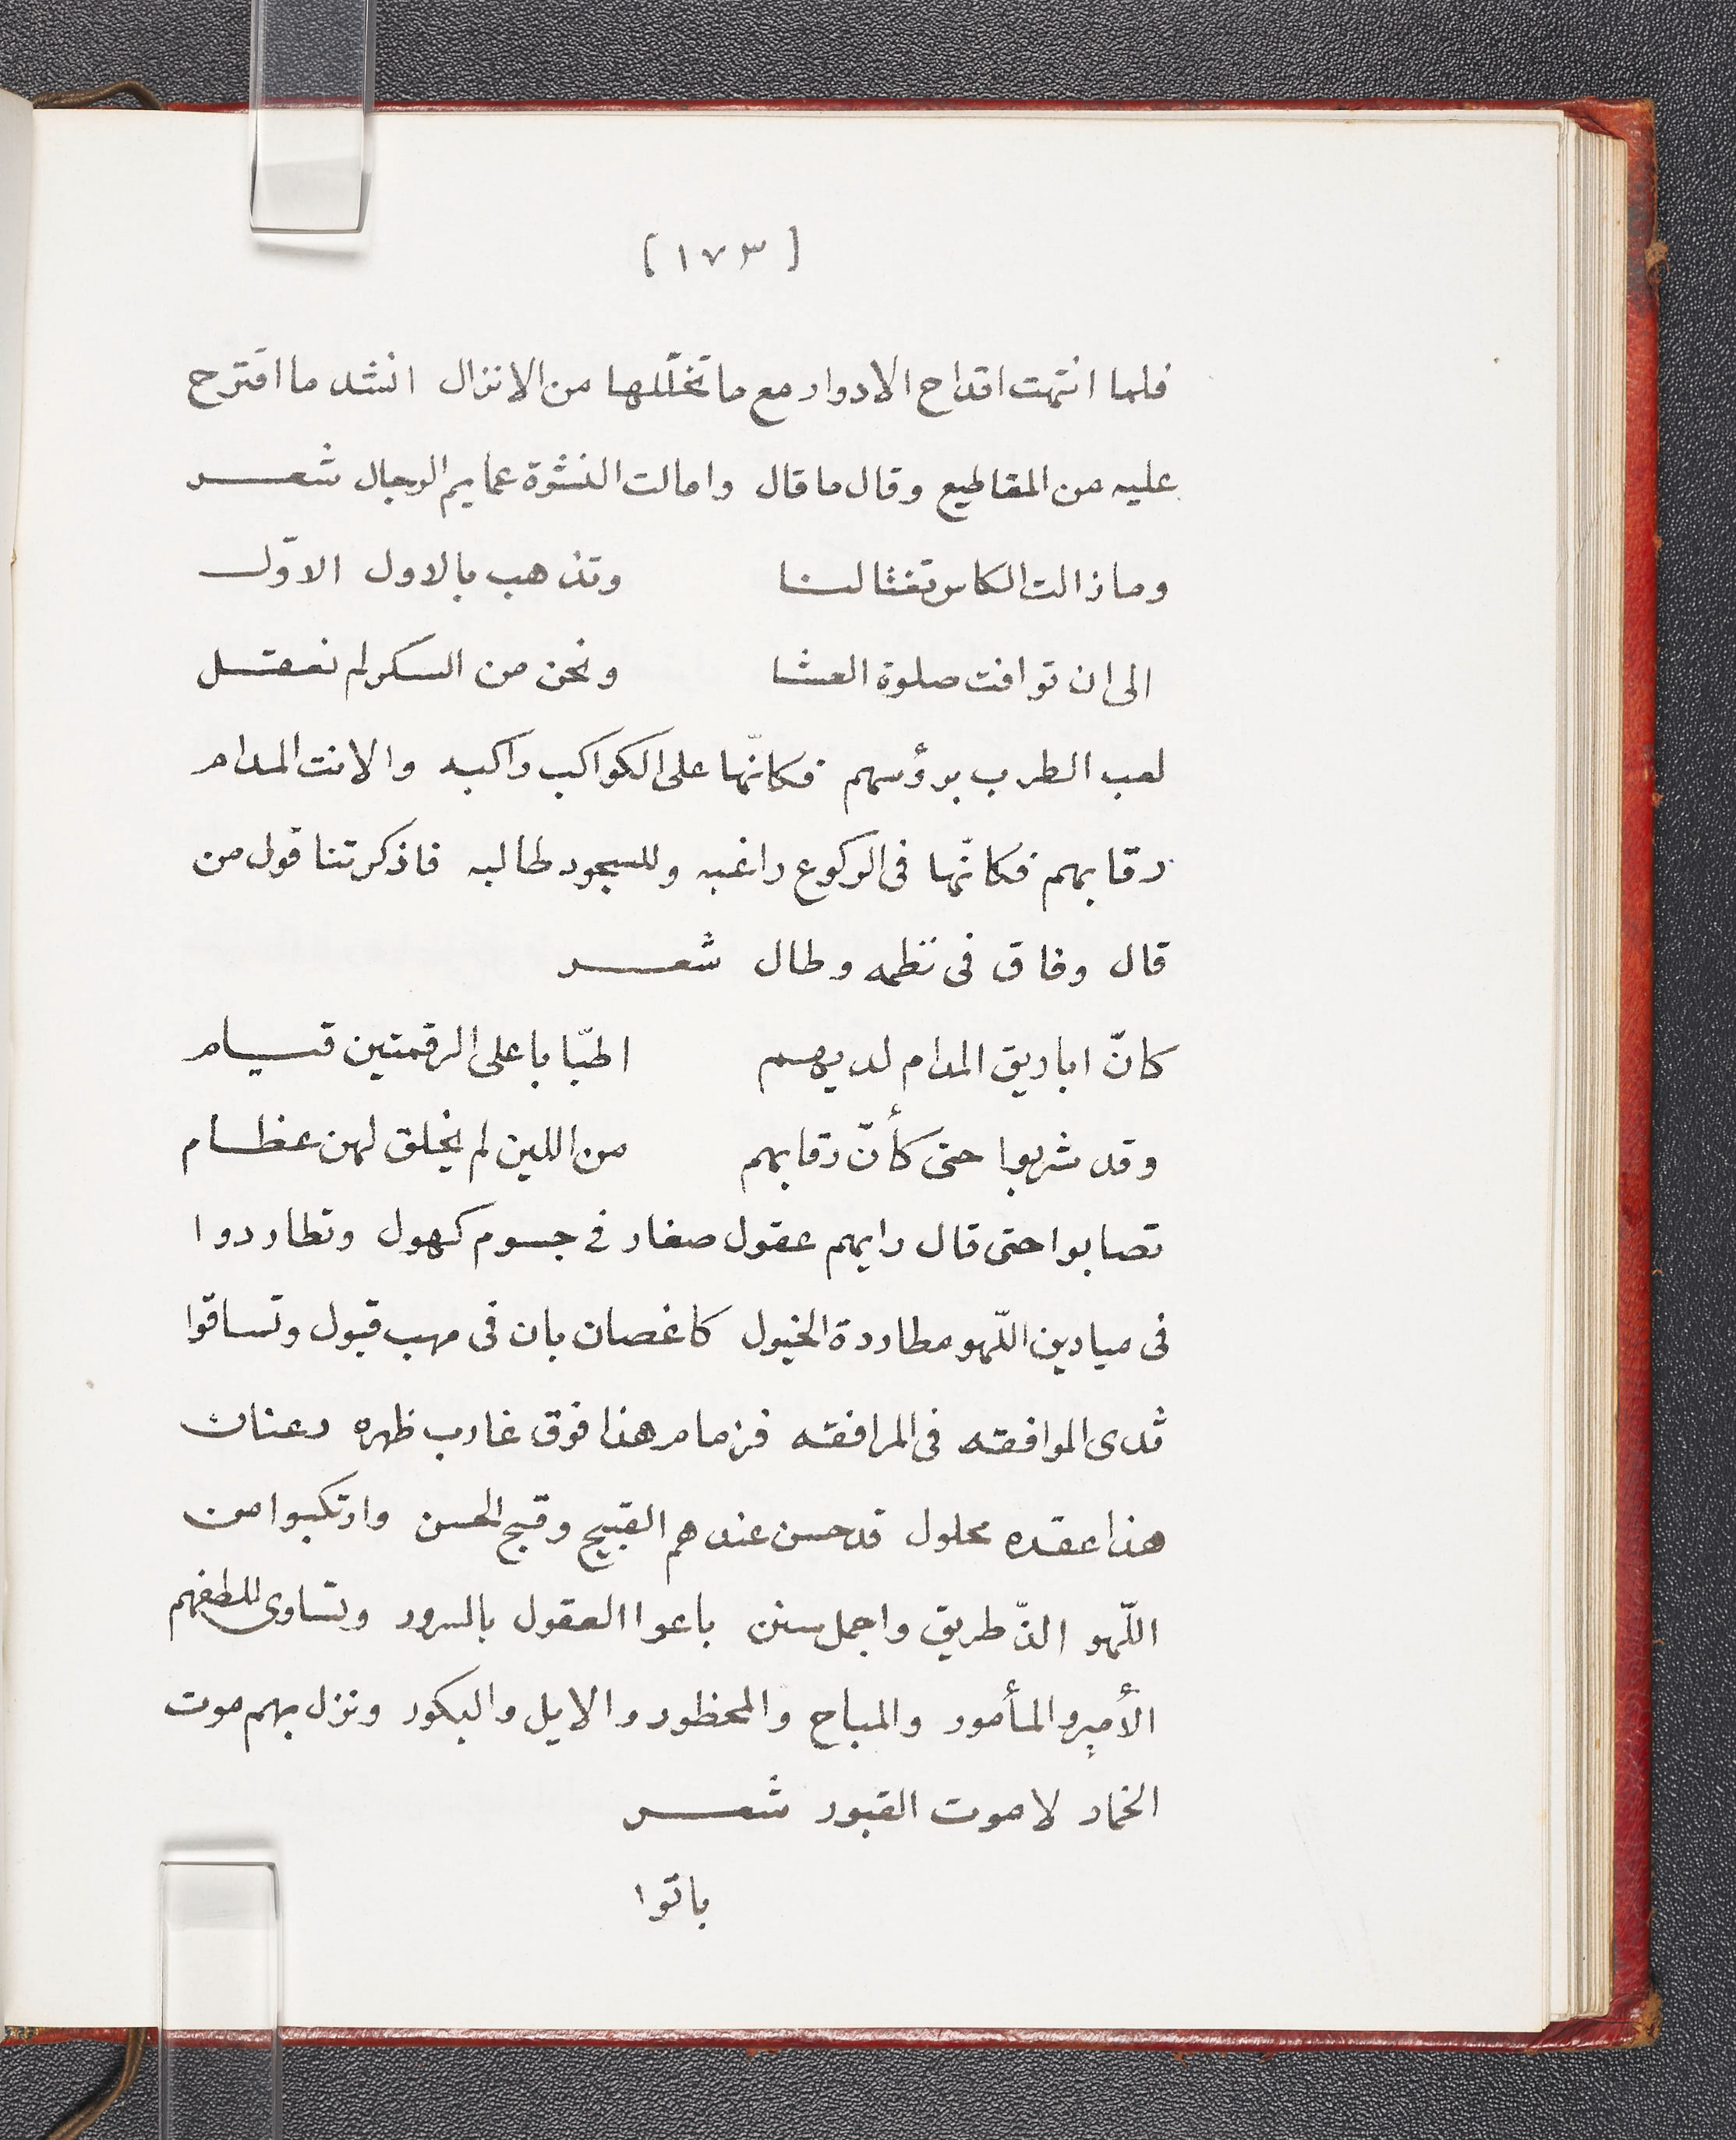 [ ١٧٣ ]
فلما انتهت اقداح الادوار مع ما تخلّلها من الانزال انشد ما اقترح
عليه من المقاطيع وقال ما قال وامالت النشوة عمايم الرجال شعر
وما زالت الكاس تغتالنا وتذهب بالاول الاوّل
الى ان توافت صلوة العشا ونحن من السكر لم نعقل
لعب الطرب برؤسهم فكانّها على الكواكب راكبه والانت المدام
رقابهم فكانّها فى الركوع راغبه وللسجود طالبه فاذكرتنا قول من
قال وفاق فى نظمه وطال شعر
كانّ اباريق المدام لديهم اظبّا باعلى الرقمتين قيام
وقد شربوا حتى كأنّ رقابهم من اللين لم يخلق لهن عظام
تصابوا حتى قال رايهم عقول صغار فى جسوم كهول وتطاردوا
فى ميادين اللّهو مطاردة الخيول كاغصان بان فى مهب قبول وتساقوا
ثدى الموافقه فى المرافقه فزمام هذا فوق غارب ظهره وعنان
هذا عقده محلول قد حسن عندهم القبيح وقبح الحسن وارتكبوا من
اللّهو الذّ طريق واجمل سنن باعوا العقول بالسرور وتساوى للطفهم
الأمير والمأمور والمباح والمحظور والايل والبكور ونزل بهم موت
الخمار لا موت القبور شعر
باتوا